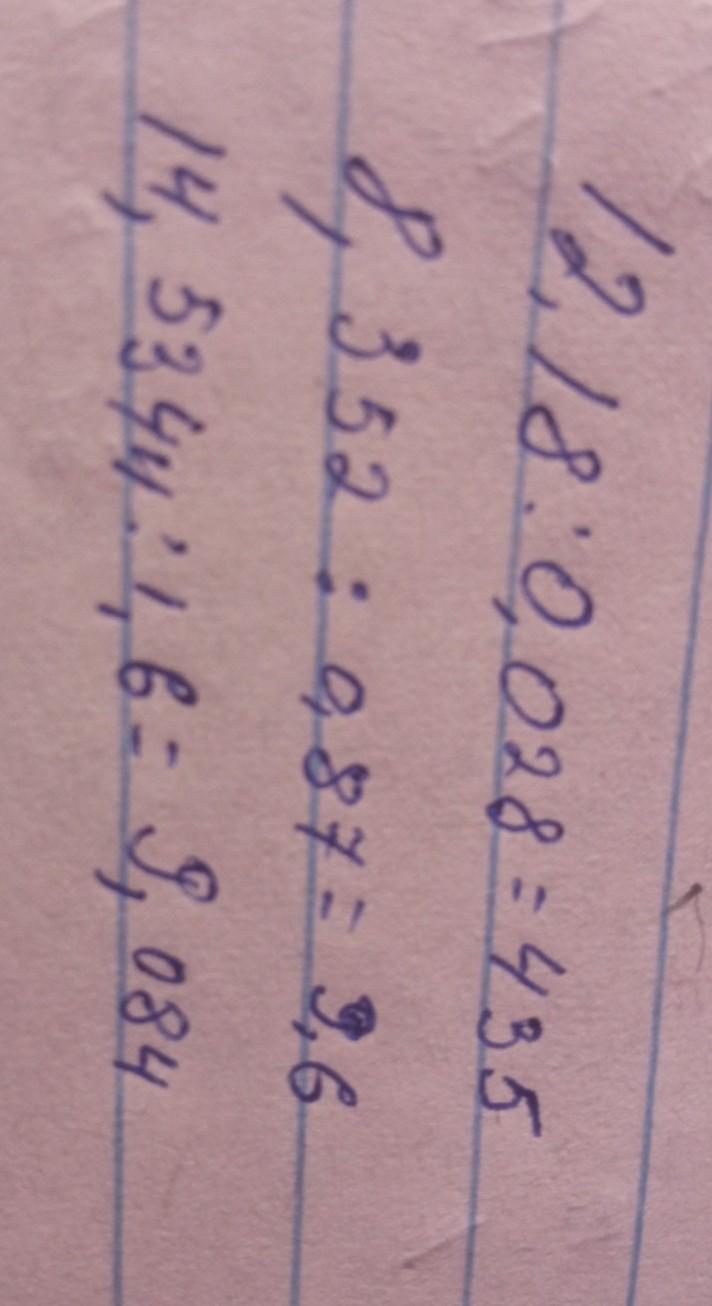 12,18:0,028=435
8,352:0,87=9,6
14,5344:1,6=9,084